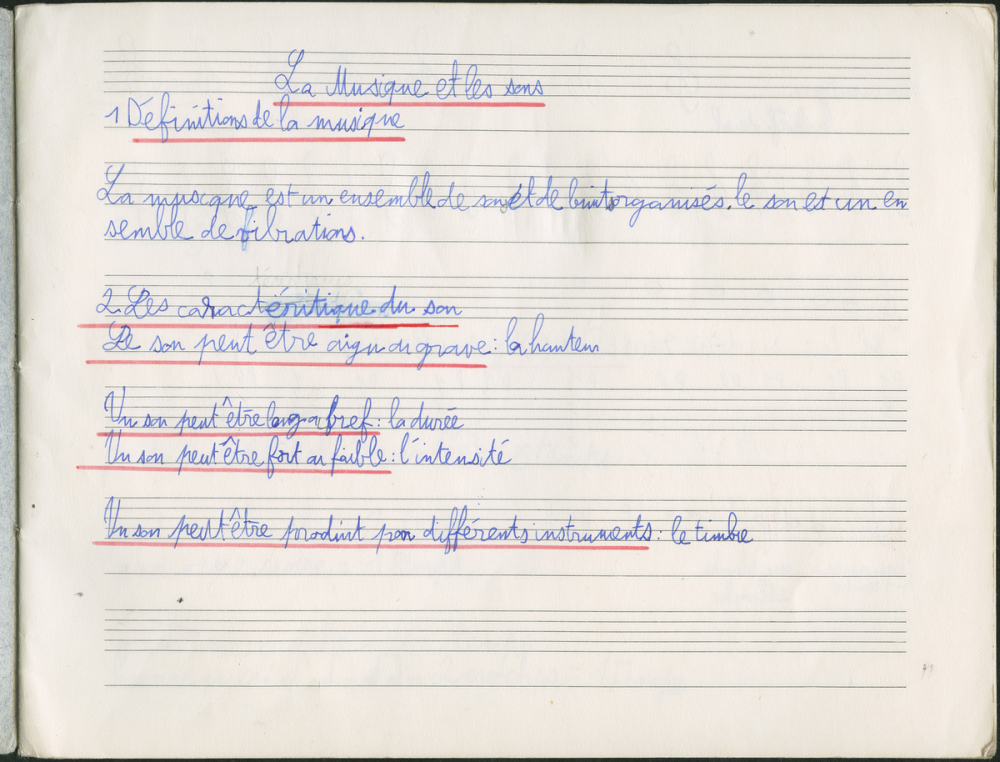 La Musique et les sons
1 Définitions de la musique
La musique est un ensemble de son et de bruits organisés. le son est un en
semble de vibrations.
2. Les caractéritique du son
Le son peut être aigu ou grave : la hauteur
Un son peut être long ou bref : la durée
Un son peut être fort ou faible : l'intensité
Un son peut être produint par différents instruments : le timbre